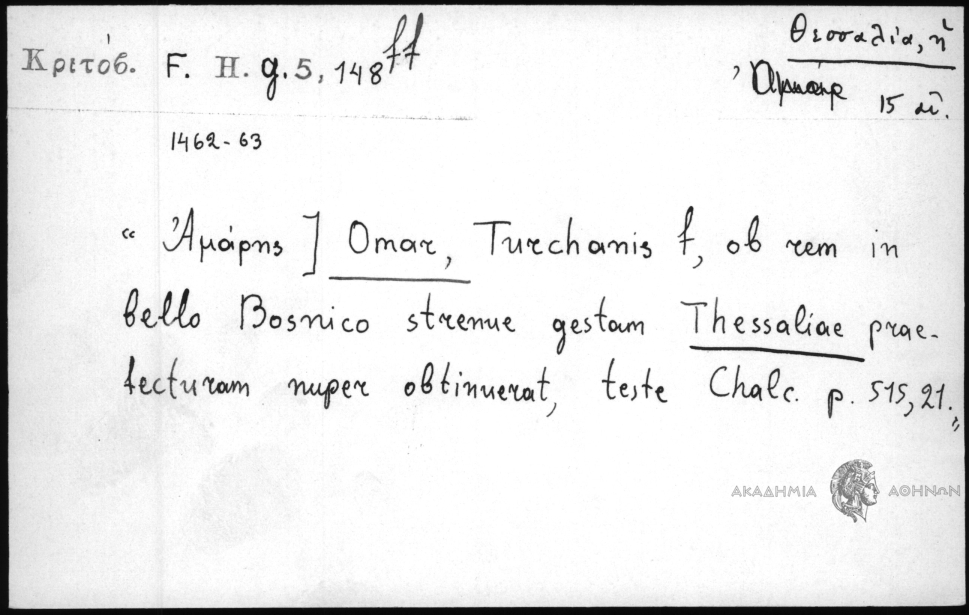 Θεσσαλία, ἡ
Κριτόβ. F. H. g. 5, 148 ff
15 αἰ.
1462-63
“ Ἀμάρης ] Omar, Turchanis f, ob rem in
bello Bosnico strenue gestam Thessaliae prae-
fecturam nuper obtinuerat, teste Chalc. p. 515, 21. „
ΑΚΑΔΗΜΙΑ ΑΘΗΝΩΝ